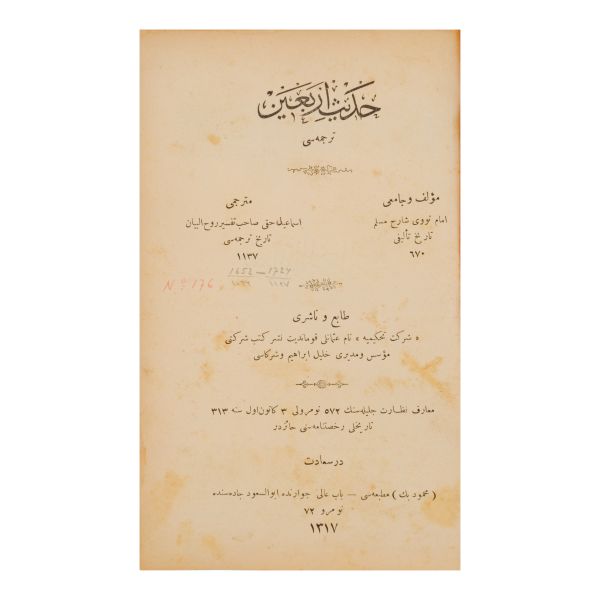 حديث اربعين
ترجمه‌سی
مؤلف و جامعی
امام نووی شارح مسلم
تاريخ تأليفی
٦٧٠
مترجمی
اسماعيل حقی صاحب تفسير روح البيان
تاريخ ترجمه‌سی
١١٣٧
1652 — 1724
١١٣٧
Nº 176
طابع و ناشری
« شركت تحكيميه » نام عثمانلی قوماندیت نشر كتب شركتی
مؤسس و مديری خليل ابراهيم و شركاسی
معارف نظارت جليله‌سنك ٥٧٢ نومرولی ٣ كانون اول سنه ٣١٣
تاريخلی رخصتنامه‌سی حائزدر
درسعادت
( محمود بك ) مطبعه‌سی — باب عالی جوارنده ابوالسعود جاده‌سنده
نومرو ٧٢
١٣١٧